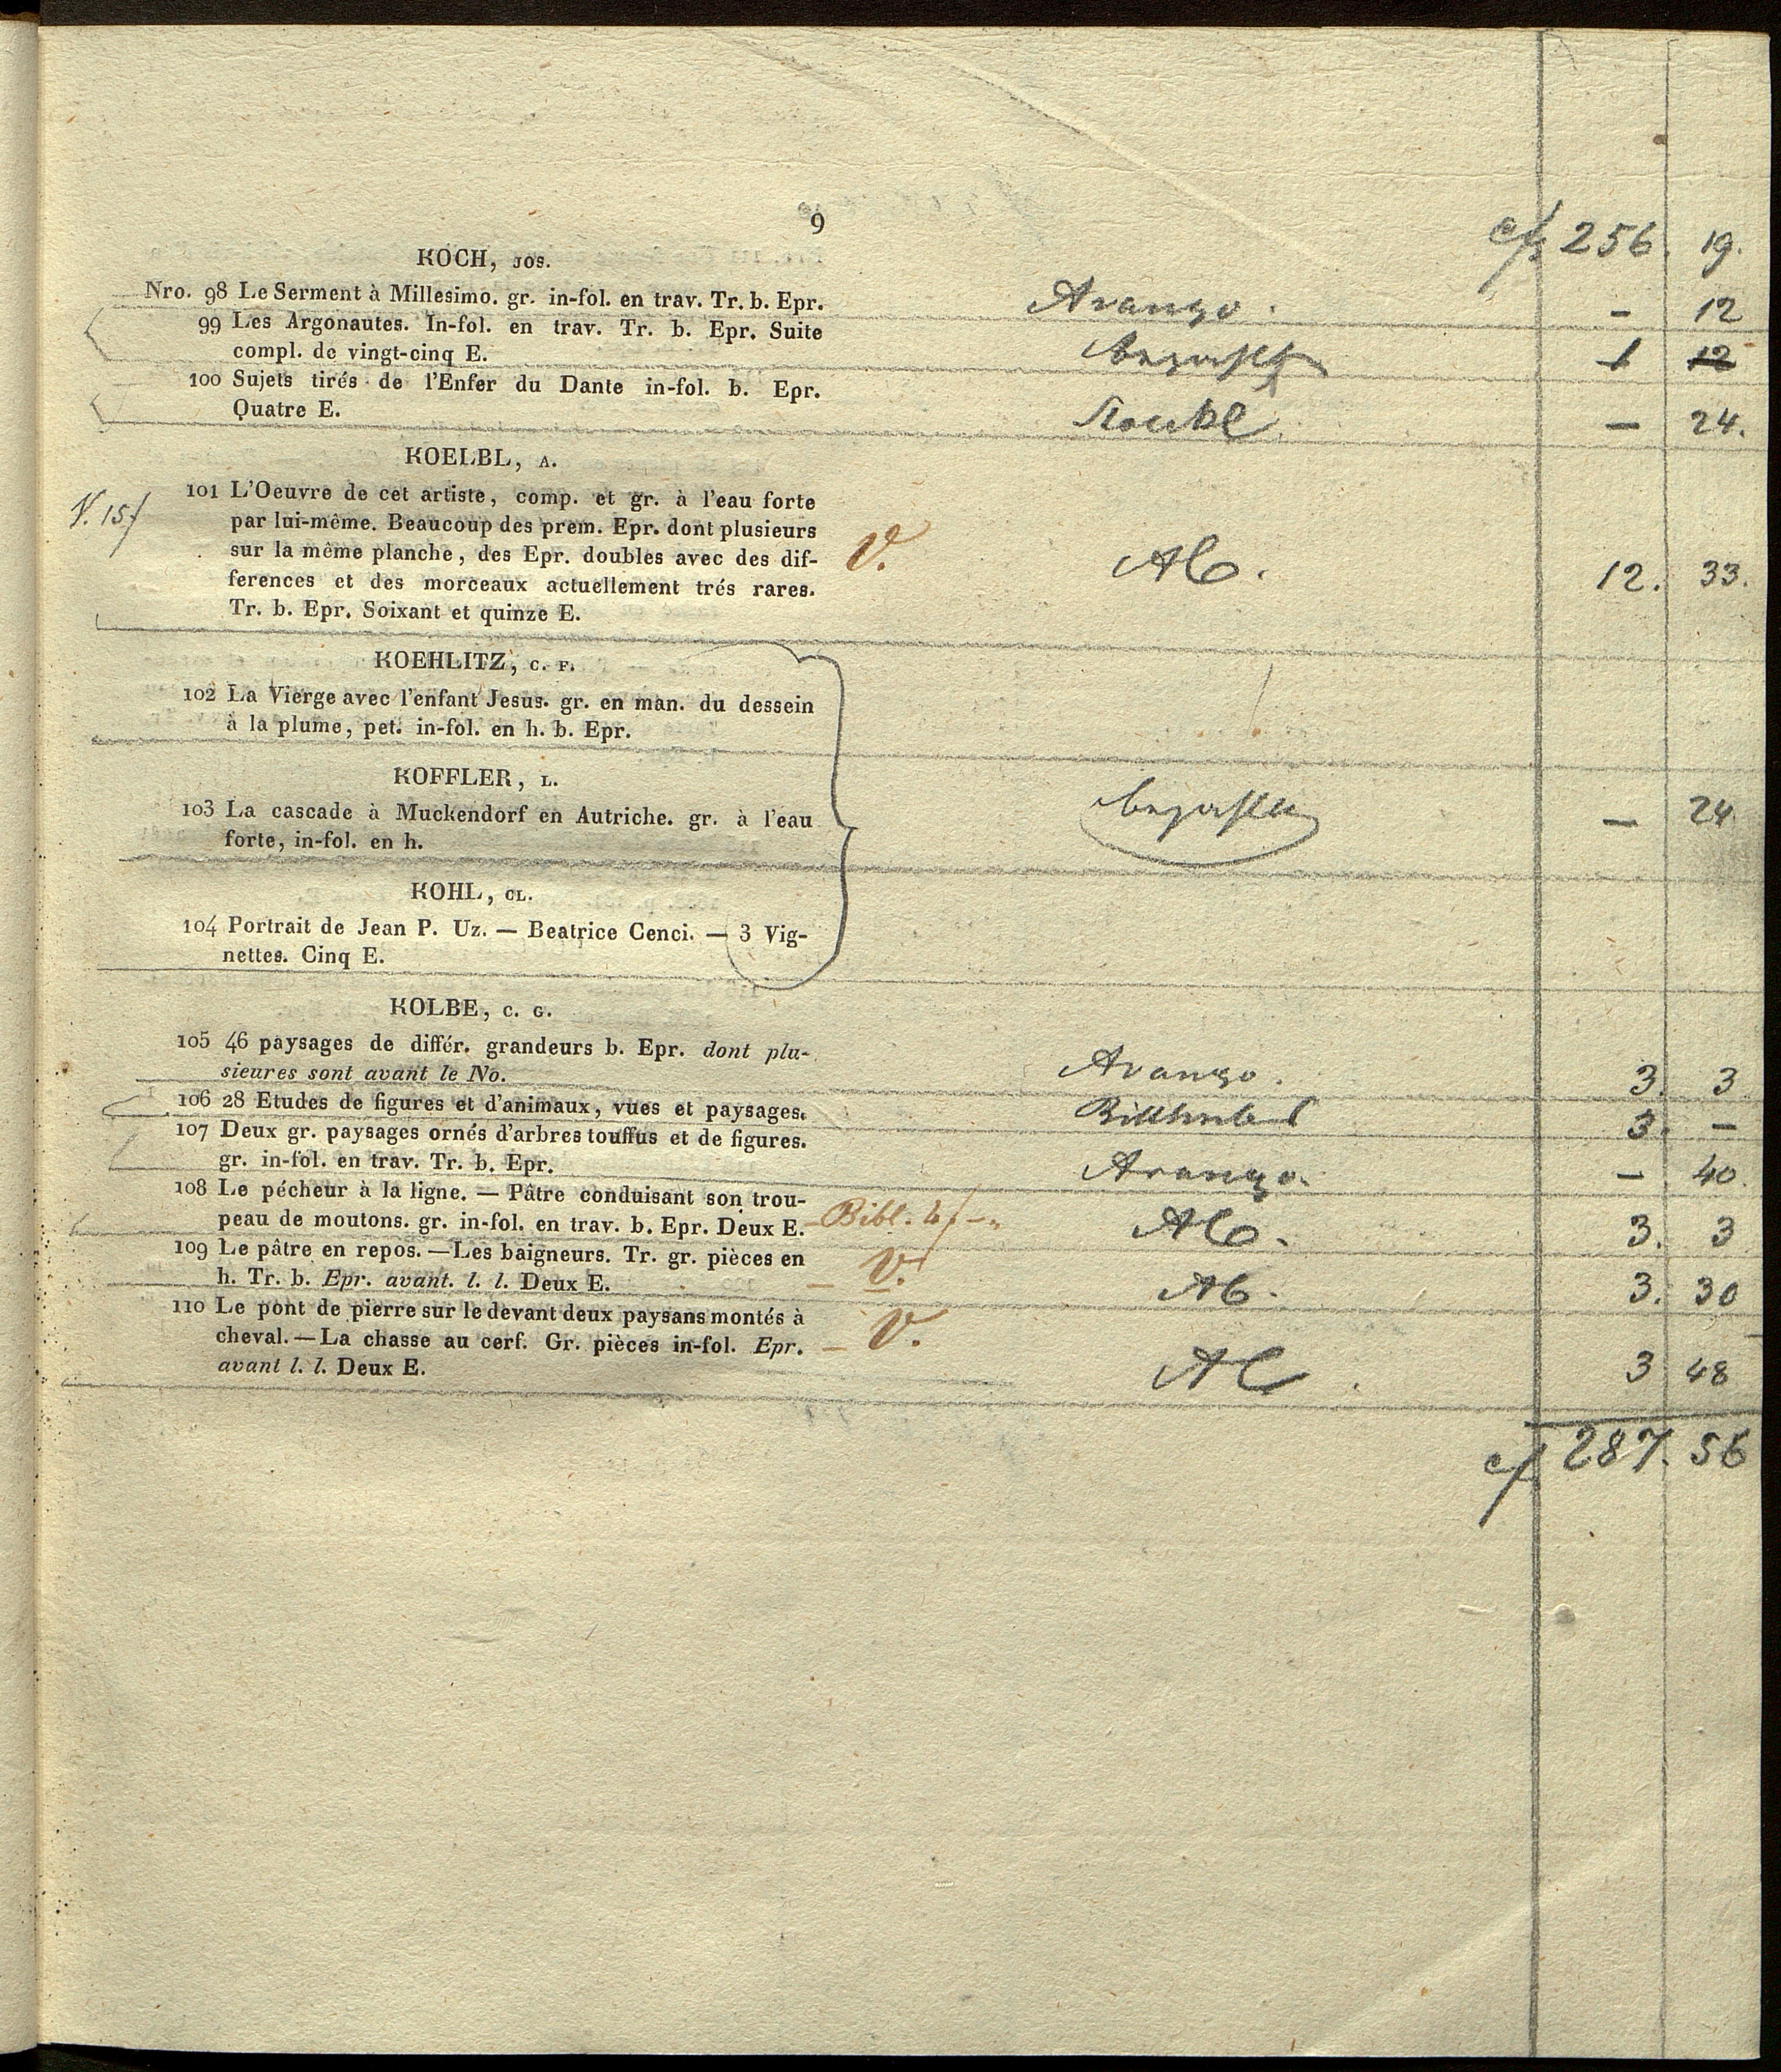 9
c/f 256. 19.
KOCH, JOS.
Nro. 98 Le Serment à Millesimo. gr. in-fol. en trav. Tr. b. Epr. Arango. - 12
99 Les Argonautes. In-fol. en trav. Tr. b. Epr. Suite
compl. de vingt-cinq E. 1 12
100 Sujets tirés de l'Enfer du Dante in-fol. b. Epr.
Quatre E. — 24.
KOELBL, A.
V. 15f 101 L'Oeuvre de cet artiste, comp. et gr. à l'eau forte
par lui-même. Beaucoup des prem. Epr. dont plusieurs
sur la même planche, des Epr. doubles avec des dif- V. 12. 33.
ferences et des morceaux actuellement trés rares.
Tr. b. Epr. Soixant et quinze E.
KOEHLITZ, C. F.
102 La Vierge avec l'enfant Jesus. gr. en man. du dessein
à la plume, pet. in-fol. en h. b. Epr.
KOFFLER, L.
103 La cascade à Muckendorf en Autriche. gr. à l'eau — 24
forte, in-fol. en h.
KOHL, CL.
104 Portrait de Jean P. Uz. — Beatrice Cenci. — 3 Vig-
nettes. Cinq E.
KOLBE, C. G.
105 46 paysages de différ. grandeurs b. Epr. dont plu-
sieures sont avant le No. Arango. 3. 3
106 28 Etudes de figures et d'animaux, vues et paysages. 3. —
107 Deux gr. paysages ornés d'arbres touffus et de figures.
gr. in-fol. en trav. Tr. b. Epr. Arango. — 40.
108 Le pécheur à la ligne. — Pâtre conduisant son trou-
peau de moutons. gr. in-fol. en trav. b. Epr. Deux E. Bibl. 3. 3
109 Le pâtre en repos. — Les baigneurs. Tr. gr. pièces en V.
h. Tr. b. Epr. avant. l. l. Deux E. 3. 30
110 Le pont de pierre sur le devant deux paysans montés à
cheval. — La chasse au cerf. Gr. pièces in-fol. Epr. V.
avant l. l. Deux E. 3 48
c/f 287. 56